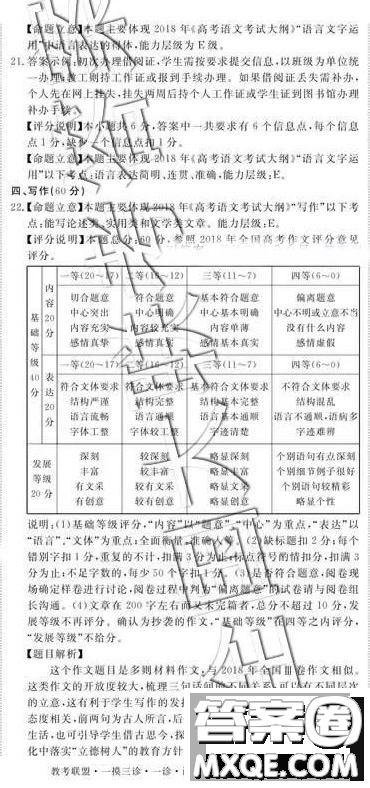 【命题立意】本题主要体现2018年《高考语文考试大纲》“语言文字运
用”中语言表达的得体,能力层级为E级。
21.答案示例:初次办理借阅证,学生需按要求提交信息,以班级为单位统
一办理;教工则持工作证或报到手续办理。如果借阅证丢失需补办,
个人先在网上挂失,挂失两周后持个人工作证或学生证到图书馆办理
补办手续。
【评分说明】本小题共6分,答案中一共要求有6个信息点,每个信息
点1分,缺少一个信息点扣1分。
【命题立意】本题主要体现2018年《高考语文考试大纲》“语言文字运
用”以下考点:语言表达简明、连贯、准确,能力层级:E。
四、写作(60分)
22.【命题立意】本题主要体现2018年《高考语文考试大纲》“写作”以下考
点:能写论述类、实用类和文学类文章。能力层级:E。
【评分说明】本题总分:60分,参照2018年全国高考作文评分意见
评分。
一等(20~17) 二等(16~12) 三等(11~7) 四等(6~0)
基础等级40分
内容20分
切合题意 符合题意 基本符合题意 偏离题意
中心突出 中心明确 中心基本明确 中心不明或立意不当
内容充实 内容较充实 内容单薄 没有什么内容
感情真挚 感情真实 感情基本真实 感情虚假
一等(20~17) 二等(16~12) 三等(11~7) 四等(6~0)
表达20分
符合文体要求 符合文体要求 基本符合文体要求 不符合文体要求
结构严谨 结构完整 结构基本完整 结构混乱
语言流畅 语言通顺 语言基本通顺 语言不通顺,语病多
字体工整 字体较工整 字迹清楚 字迹难辨
发展等级20分
深刻 较深刻 略显深刻 个别语句有点深刻
丰富 较丰富 略显丰富 个别细节例子很好
有文采 较有文采 略显文采 个别语句较精彩
有创意 较有创意 略显创意 略显个性
说明:(1)基础等级评分,“内容”以“题意”、“中心”为重点,“表达”以
“语言”、“文体”为重点;全面衡量,准确入等。(2)缺标题扣2分;每个
错别字扣1分,重复的不计,扣满3分为止;标点符号酌情扣分,扣满3
分为止;不足字数的,每少50个字扣1分。(3)是否符合题意,阅卷现
场确定样卷进行讨论,阅卷过程中判为“偏离题意”的试卷请与阅卷组
长沟通。(4)文章在200字左右而又未完篇者,总分不超过10分,发
展等级不再评分。确认为抄袭的作文,“基础等级”在四等之内评分,
“发展等级”不给分。
【题目解析】
这个作文题目是多则材料作文,与2018年全国Ⅲ卷作文相似。
这类作文的开放度较大,梳理三句话间的不同关系,可以有不同层次
的立意,这有利于学生写作的发
态度相关,前两句为古人所言,后
生活,也可引导学生借古思今,探
化中落实“立德树人”的教育方针
教考联盟·一摸三诊·一诊·
答案圈
MXQE.COM